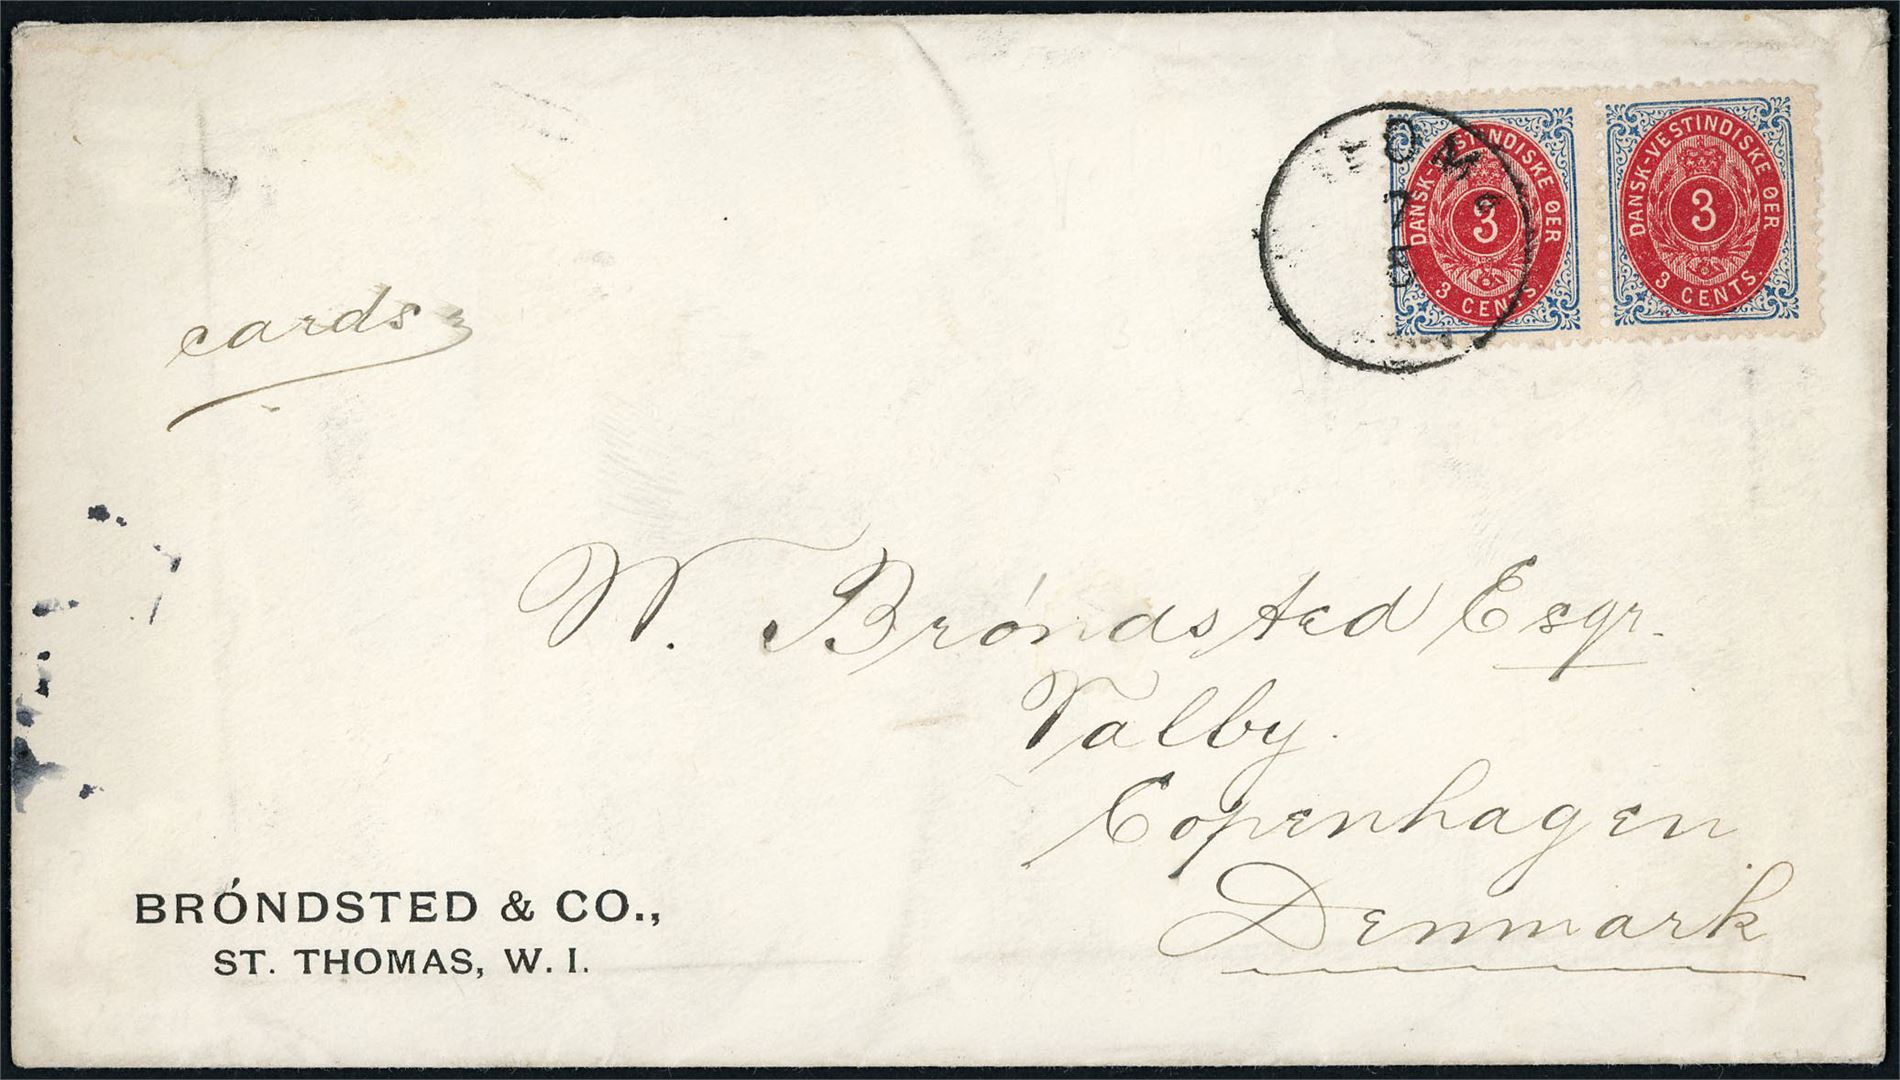 DANSK-VESTINDISKE ØER
3
3 CENTS.
DANSK-VESTINDISKE ØER
3
3 CENTS.
cards
W. Bróndsted Esqr.
Valby.
Copenhagen
Denmark
BRÓNDSTED & CO.,
ST. THOMAS, W. I.